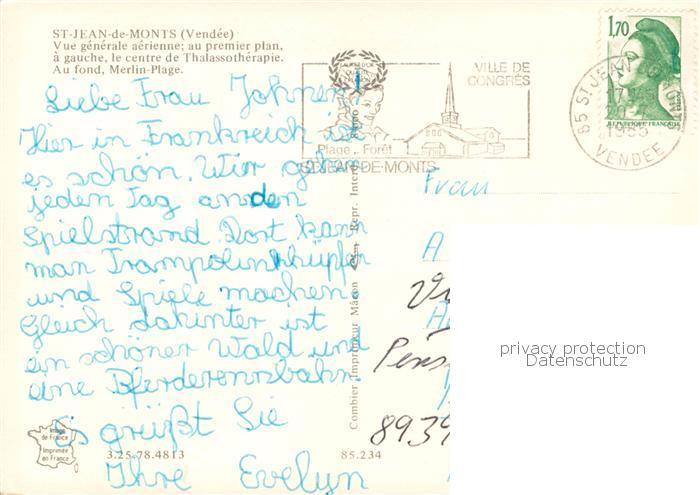 ST-JEAN-de-MONTS (Vendée)
Vue générale aérienne; au premier plan,
à gauche, le centre de Thalassothérapie.
Au fond, Merlin-Plage.
Liebe Frau Johnen
Hier in Frankreich ist
es schön. Wir gehen
jeden Tag an den
Spielstrand. Dort kann
man Trampolinhüpfen
und Spiele machen.
Gleich dahinter ist
ein schöner Wald und
eine Pferderennsbahn.
Es grüßt Sie
Ihre Evelyn
Image
de France
Imprimée
en France
3.25.78.4813
85.234
Combier Imprimeur Mâcon
Repr. Inter
VILLE DE
CONGRÈS
Plage . Forêt
ST JEAN-DE-MONTS
85 ST JEAN DE MONTS
1985
VENDEE
1,70
REPUBLIQUE FRANÇAISE
Frau
A
Pens
8939
privacy protection
Datenschutz